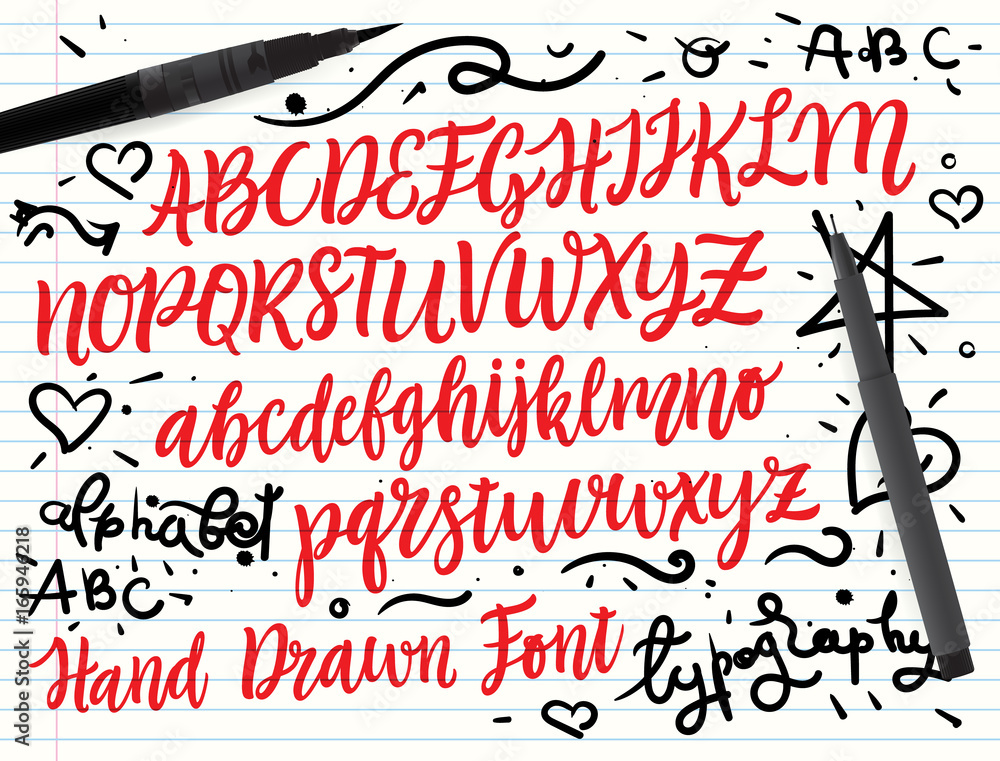 ABC
ABCDEFGHIJKLM
NOPQRSTUVWXYZ
abcdefghijklmno
alphabet
pqrstuvwxyz
ABC
Hand Drawn Font
typography
Adobe Stock | #165946218